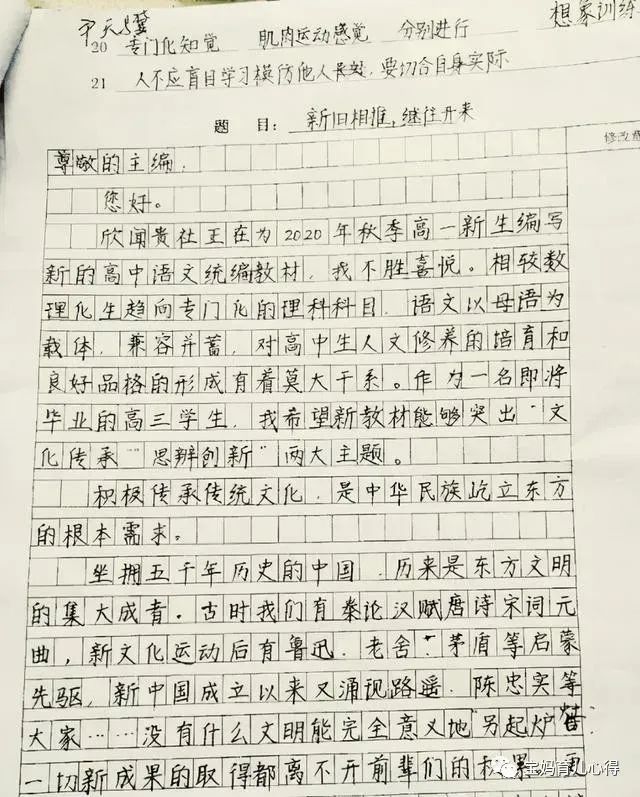 想象训练
20 专门化知觉 肌肉运动感觉 分别进行
21 人不应盲目学习模仿他人长处，要切合自身实际
题 目：新旧相推，继往开来
修改
尊敬的主编，
您好。
欣闻贵社正在为2020年秋季高一新生编写
新的高中语文统编教材，我不胜喜悦。相较数
理化生趋向专门化的理科科目，语文以母语为
载体，兼容并蓄，对高中生人文修养的培育和
良好品格的形成有着莫大干系。作为一名即将
毕业的高三学生，我希望新教材能够突出“文
化传承”“思辨创新”两大主题。
积极传承传统文化，是中华民族屹立东方
的根本需求。
坐拥五千年历史的中国，历来是东方文明
的集大成者。古时我们有秦论汉赋唐诗宋词元
曲，新文化运动后有鲁迅、老舍、茅盾等启蒙
先驱，新中国成立以来又涌现路遥、陈忠实等
大家……没有什么文明能完全意义地“另起炉灶”
一切新成果的取得都离不开前辈们的
宝妈育儿心得